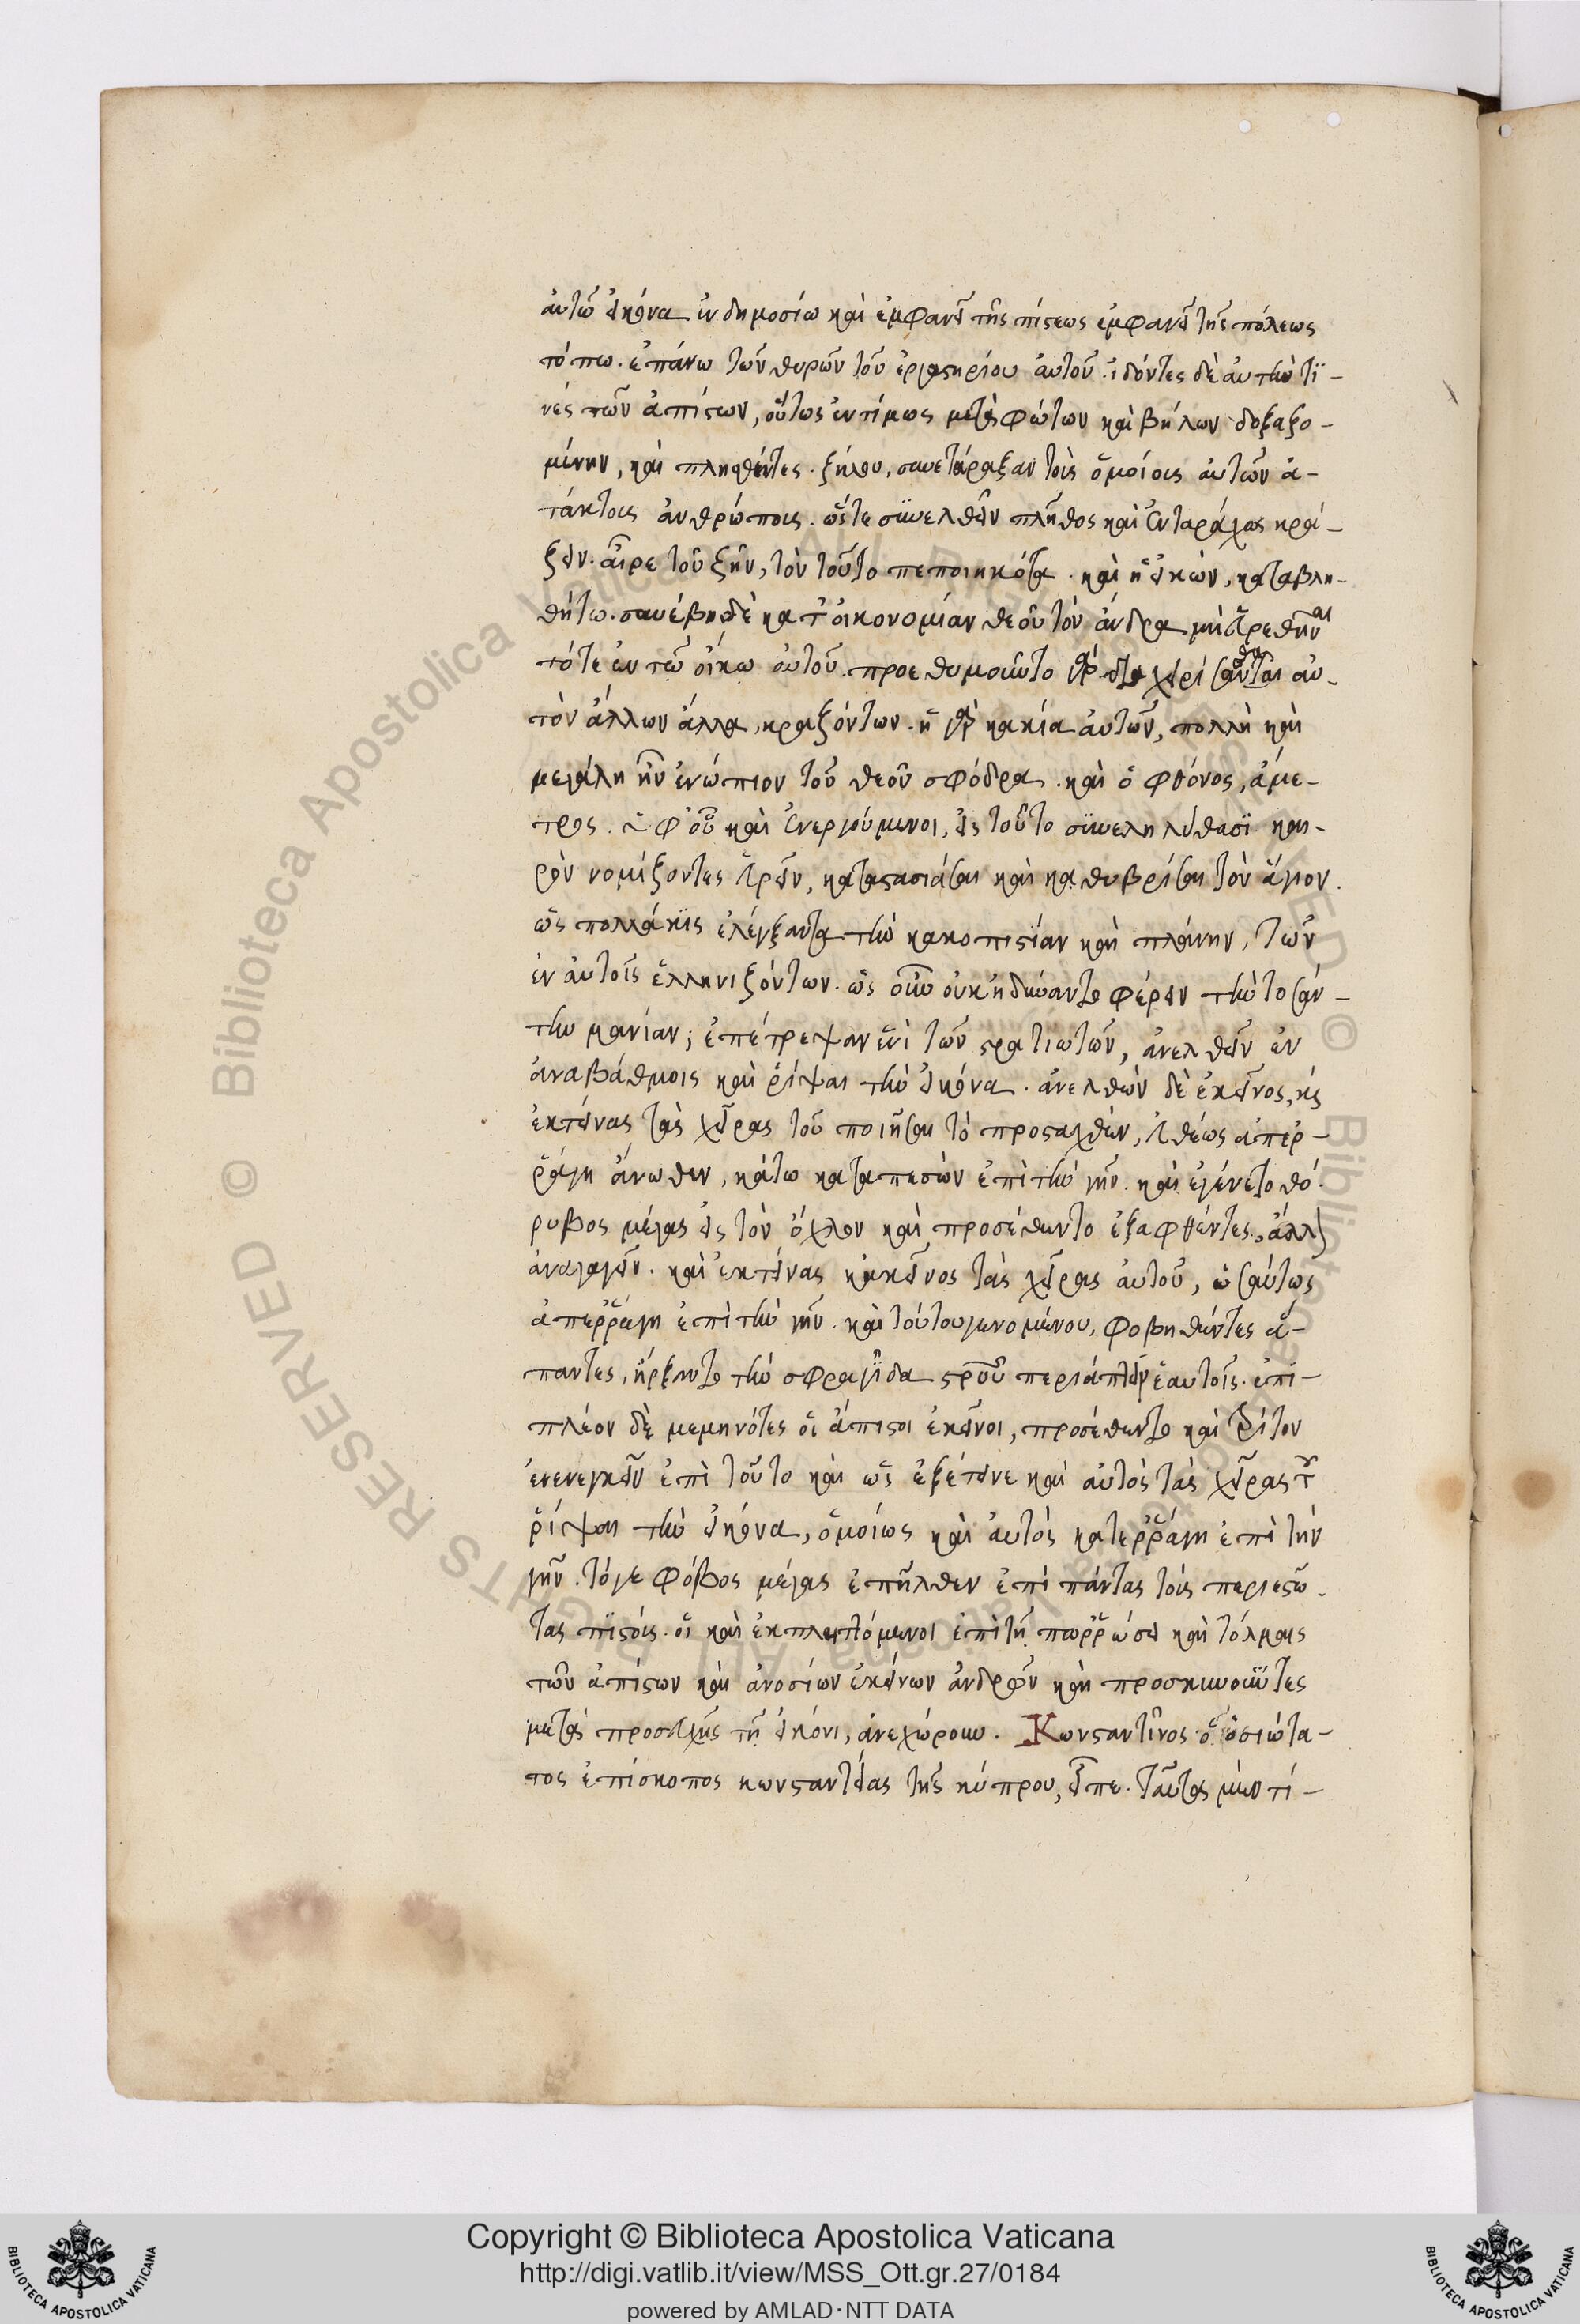 αὐτῶ εἰκόνα ἐν δημοσίω καὶ ἐμφανεῖ τῆς πίστεως ἐμφανεῖ τῆς πόλεως
τόπω. ἐπάνω τῶν θυρῶν τοῦ ἐργαστηρίου αὐτοῦ. ἰδόντες δὲ αὐτὴν τϊ-
νές τῶν ἀπίστων, οὕτως ἐντίμως μετὰ φώτων καὶ βήλων δοξαζο-
μένην, καὶ πλησθέντες ζήλου, συνετάραξαν τοὺς ὁμοίους αὐτῶν ἀ-
τάκτους ἀνθρώπους. ὥστε συνελθεῖν πλῆθος καὶ εὐταράχως κρά-
ζειν. αἶρε τοῦ ζῆν, τὸν τοῦτο πεποιηκότα. καὶ ἡ εἰκὼν, καταβλη-
θήτω. συνέβη δὲ κατ' οἰκονομίαν θεοῦ τὸν ἄνδρα μὴ εὑρεθῆναι
τότε ἐν τῶ οἴκω αὐτοῦ. προεθυμοῦντο γὰρ διαχειρίσασθαι αὐ-
τὸν ἄλλων ἄλλα κραζόντων. ἡ γὰρ κακία αὐτῶν, πολλὴ καὶ
μεγάλη ἦν ἐνώπιον τοῦ θεοῦ σφόδρα. καὶ ὁ φθόνος, ἄμε-
τρος. ὑφ' οὗ καὶ ἐνεργούμενοι, εἰς τοῦτο συνεληλύθασϊ και-
ρὸν νομίζοντες εὑρεῖν, καταστασιάσαι καὶ καθυβρίσαι τὸν ἅγιον.
ὡς πολλάκϊς ἐλέγξαντα τὴν κακοπιστίαν καὶ πλάνην, τῶν
ἐν αὐτοῖς ἑλληνιζόντων. ὡς οὖν οὐκ ἠδύναντο φέρειν τὴν τοσαύ-
την μανίαν, ἐπέτρεψαν ἑνὶ τῶν στρατιωτῶν, ἀνελθεῖν ἐν
ἀναβάθμοις καὶ ῥίψαι τὴν εἰκόνα. ἀνελθὼν δὲ ἐκεῖνος, καὶ
ἐκτείνας τὰς χεῖρας τοῦ ποιῆσαι τὸ προσταχθὲν, εὐθέως ἀπερ-
ράγη ἄνωθεν, κάτω καταπεσὼν ἐπὶ τὴν γῆν. καὶ ἐγένετο θό-
ρυβος μέγας εἰς τὸν ὄχλον καὶ προσέθεντο ἐξαφθέντες ἄλλον
ἀναγαγεῖν. καὶ ἐκτείνας κἀκεῖνος τὰς χεῖρας αὐτοῦ, ὡσαύτως
ἀπερράγη ἐπὶ τὴν γῆν. καὶ τούτου γενομένου, φοβηθέντες ἅ-
παντες, ἤρξαντο τὴν σφραγῖδα σταυροῦ περιάπτειν ἑαυτοῖς. ἐπὶ-
πλέον δὲ μεμηνότες οἱ ἄπιστοι ἐκεῖνοι, προσέθεντο καὶ τρίτον
ἐνενεγκεῖν ἐπὶ τοῦτο καὶ ὡς ἐξέτεινε καὶ αὐτὸς τὰς χεῖρας τοῦ
ῥίψαι τὴν εἰκόνα, ὁμοίως καὶ αὐτὸς κατερράγη ἐπὶ τὴν
γῆν. τότε φόβος μέγας ἐπῆλθεν ἐπὶ πάντας τοὺς περιεστῶ-
τας πϊστούς. οἳ καὶ ἐκπληττόμενοι ἐπὶ τῇ πωρρώσει καὶ τόλμαις
τῶν ἀπίστων καὶ ἀνοσίων ἐκείνων ἀνδρῶν καὶ προσκυνοῦντες
μετὰ προσευχῆς τῇ εἰκόνι, ἀνεχώρουν. Κωνσταντῖνος ὁ ὁσιώτα-
τος ἐπίσκοπος κωνσταντείας τῆς κύπρου, εἶπε. ταύτας μὲν τί-
Copyright © Biblioteca Apostolica Vaticana
http://digi.vatlib.it/view/MSS_Ott.gr.27/0184
powered by AMLAD·NTT DATA